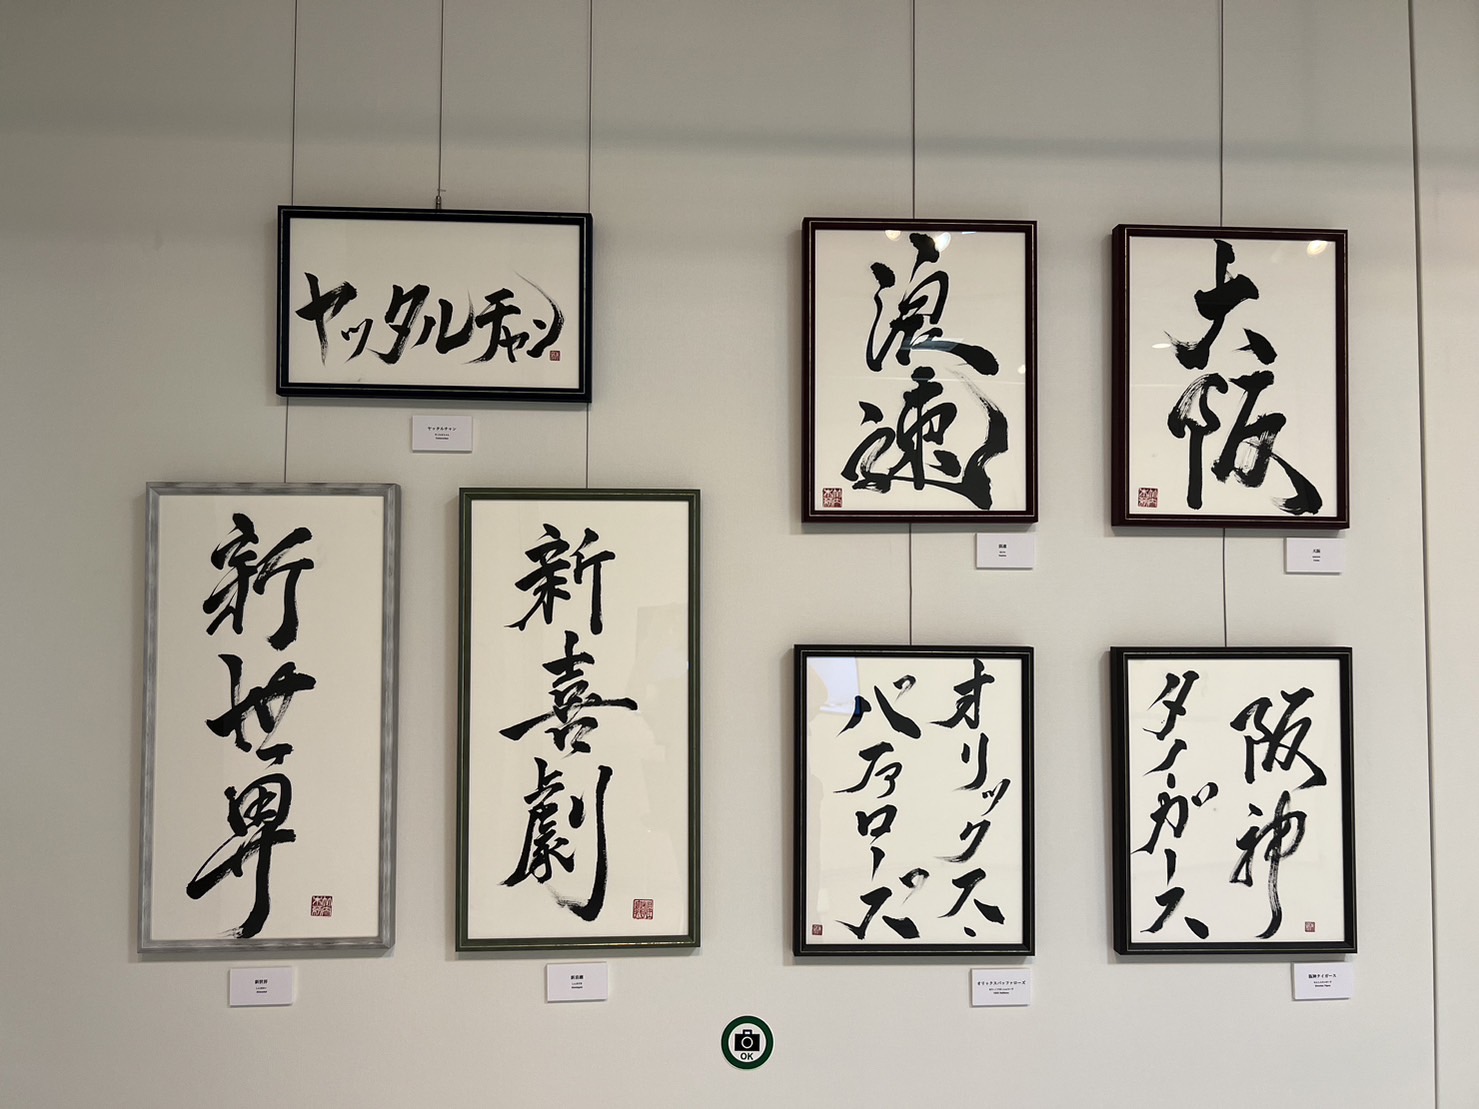 ヤッタルチャン
ヤッタルチャン
浪速
浪速
大阪
大阪
新世界
新世界
新喜劇
新喜劇
オリックス・
バファローズ
オリックスバッファローズ
阪神
タイガース
阪神タイガース
OK